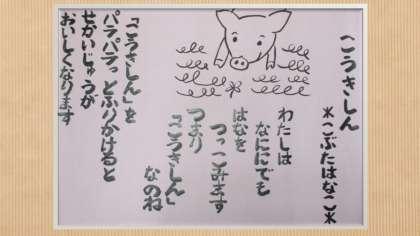 こうきしん
*こぶたはなこ*
わたしは
なににでも
はなを
つっこみます
つまり
「こうきしん」
なのね
「こうきしん」を
パラパラっとふりかけると
せかいじゅうが
おいしくなります